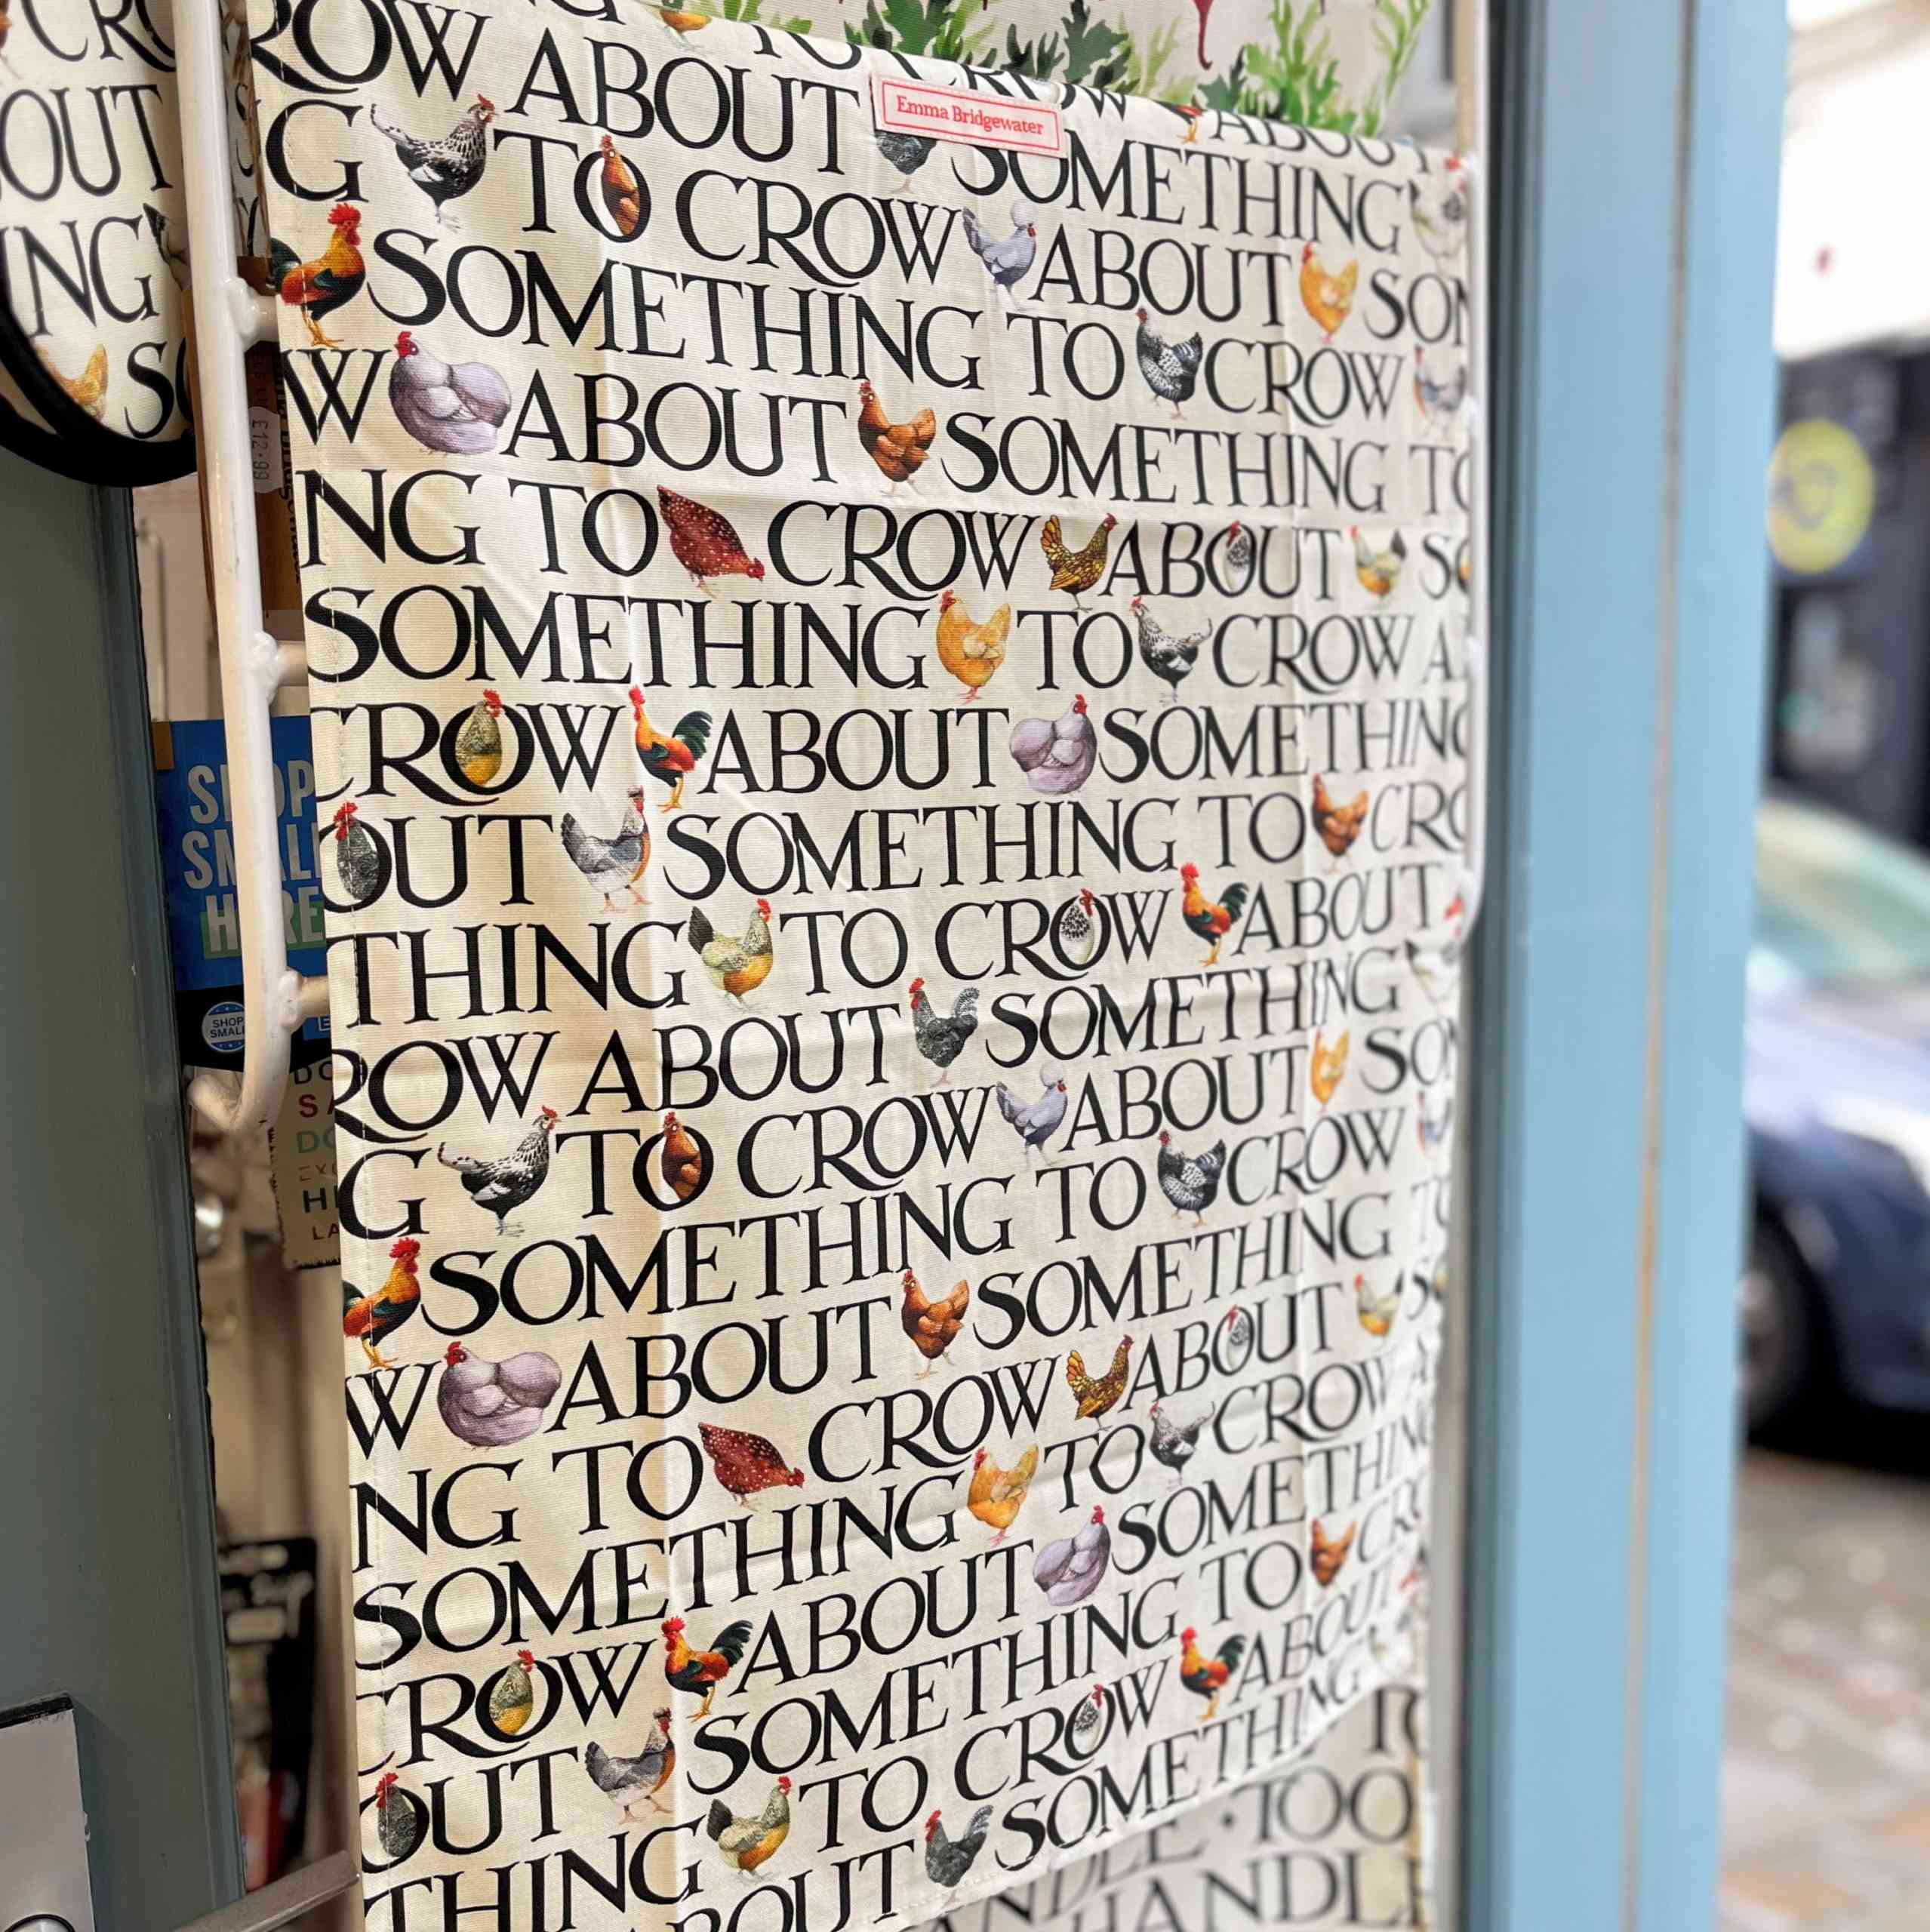 ROW ABOUT SOMETHING
Emma Bridgewater
G TO CROW ABOUT SOM
SOMETHING TO CROW
W ABOUT SOMETHING TO
NG TO CROW ABOUT SO
SOMETHING TO CROW A
CROW ABOUT SOMETHING
OUT SOMETHING TO CRO
THING TO CROW ABOUT
ROW ABOUT SOMETHING
G TO CROW ABOUT SOM
SOMETHING TO CROW
W ABOUT SOMETHING TO
NG TO CROW ABOUT SO
SOMETHING TO CROW A
CROW ABOUT SOMETHING
OUT SOMETHING TO CRO
THING TO CROW ABOUT
BOUT SOMETHING
TO
NDLE · TOO
HANDLE
CRO
OUT
ING
SO
£12.99
SHOP
SMALL
HERE
SHOP
SMALL